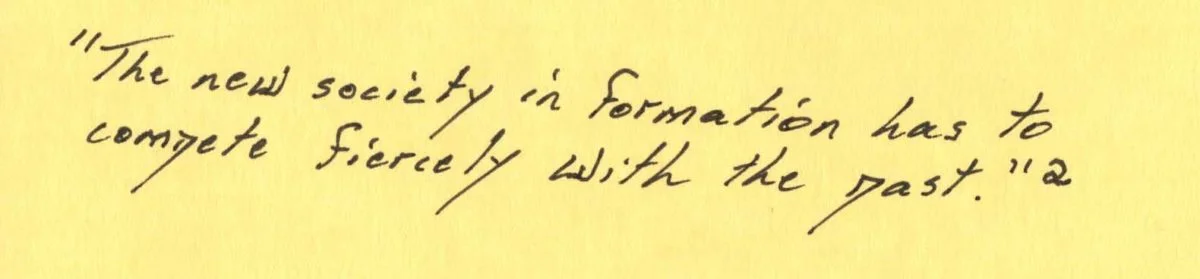 "The new society in formation has to
compete fiercely with the past."2